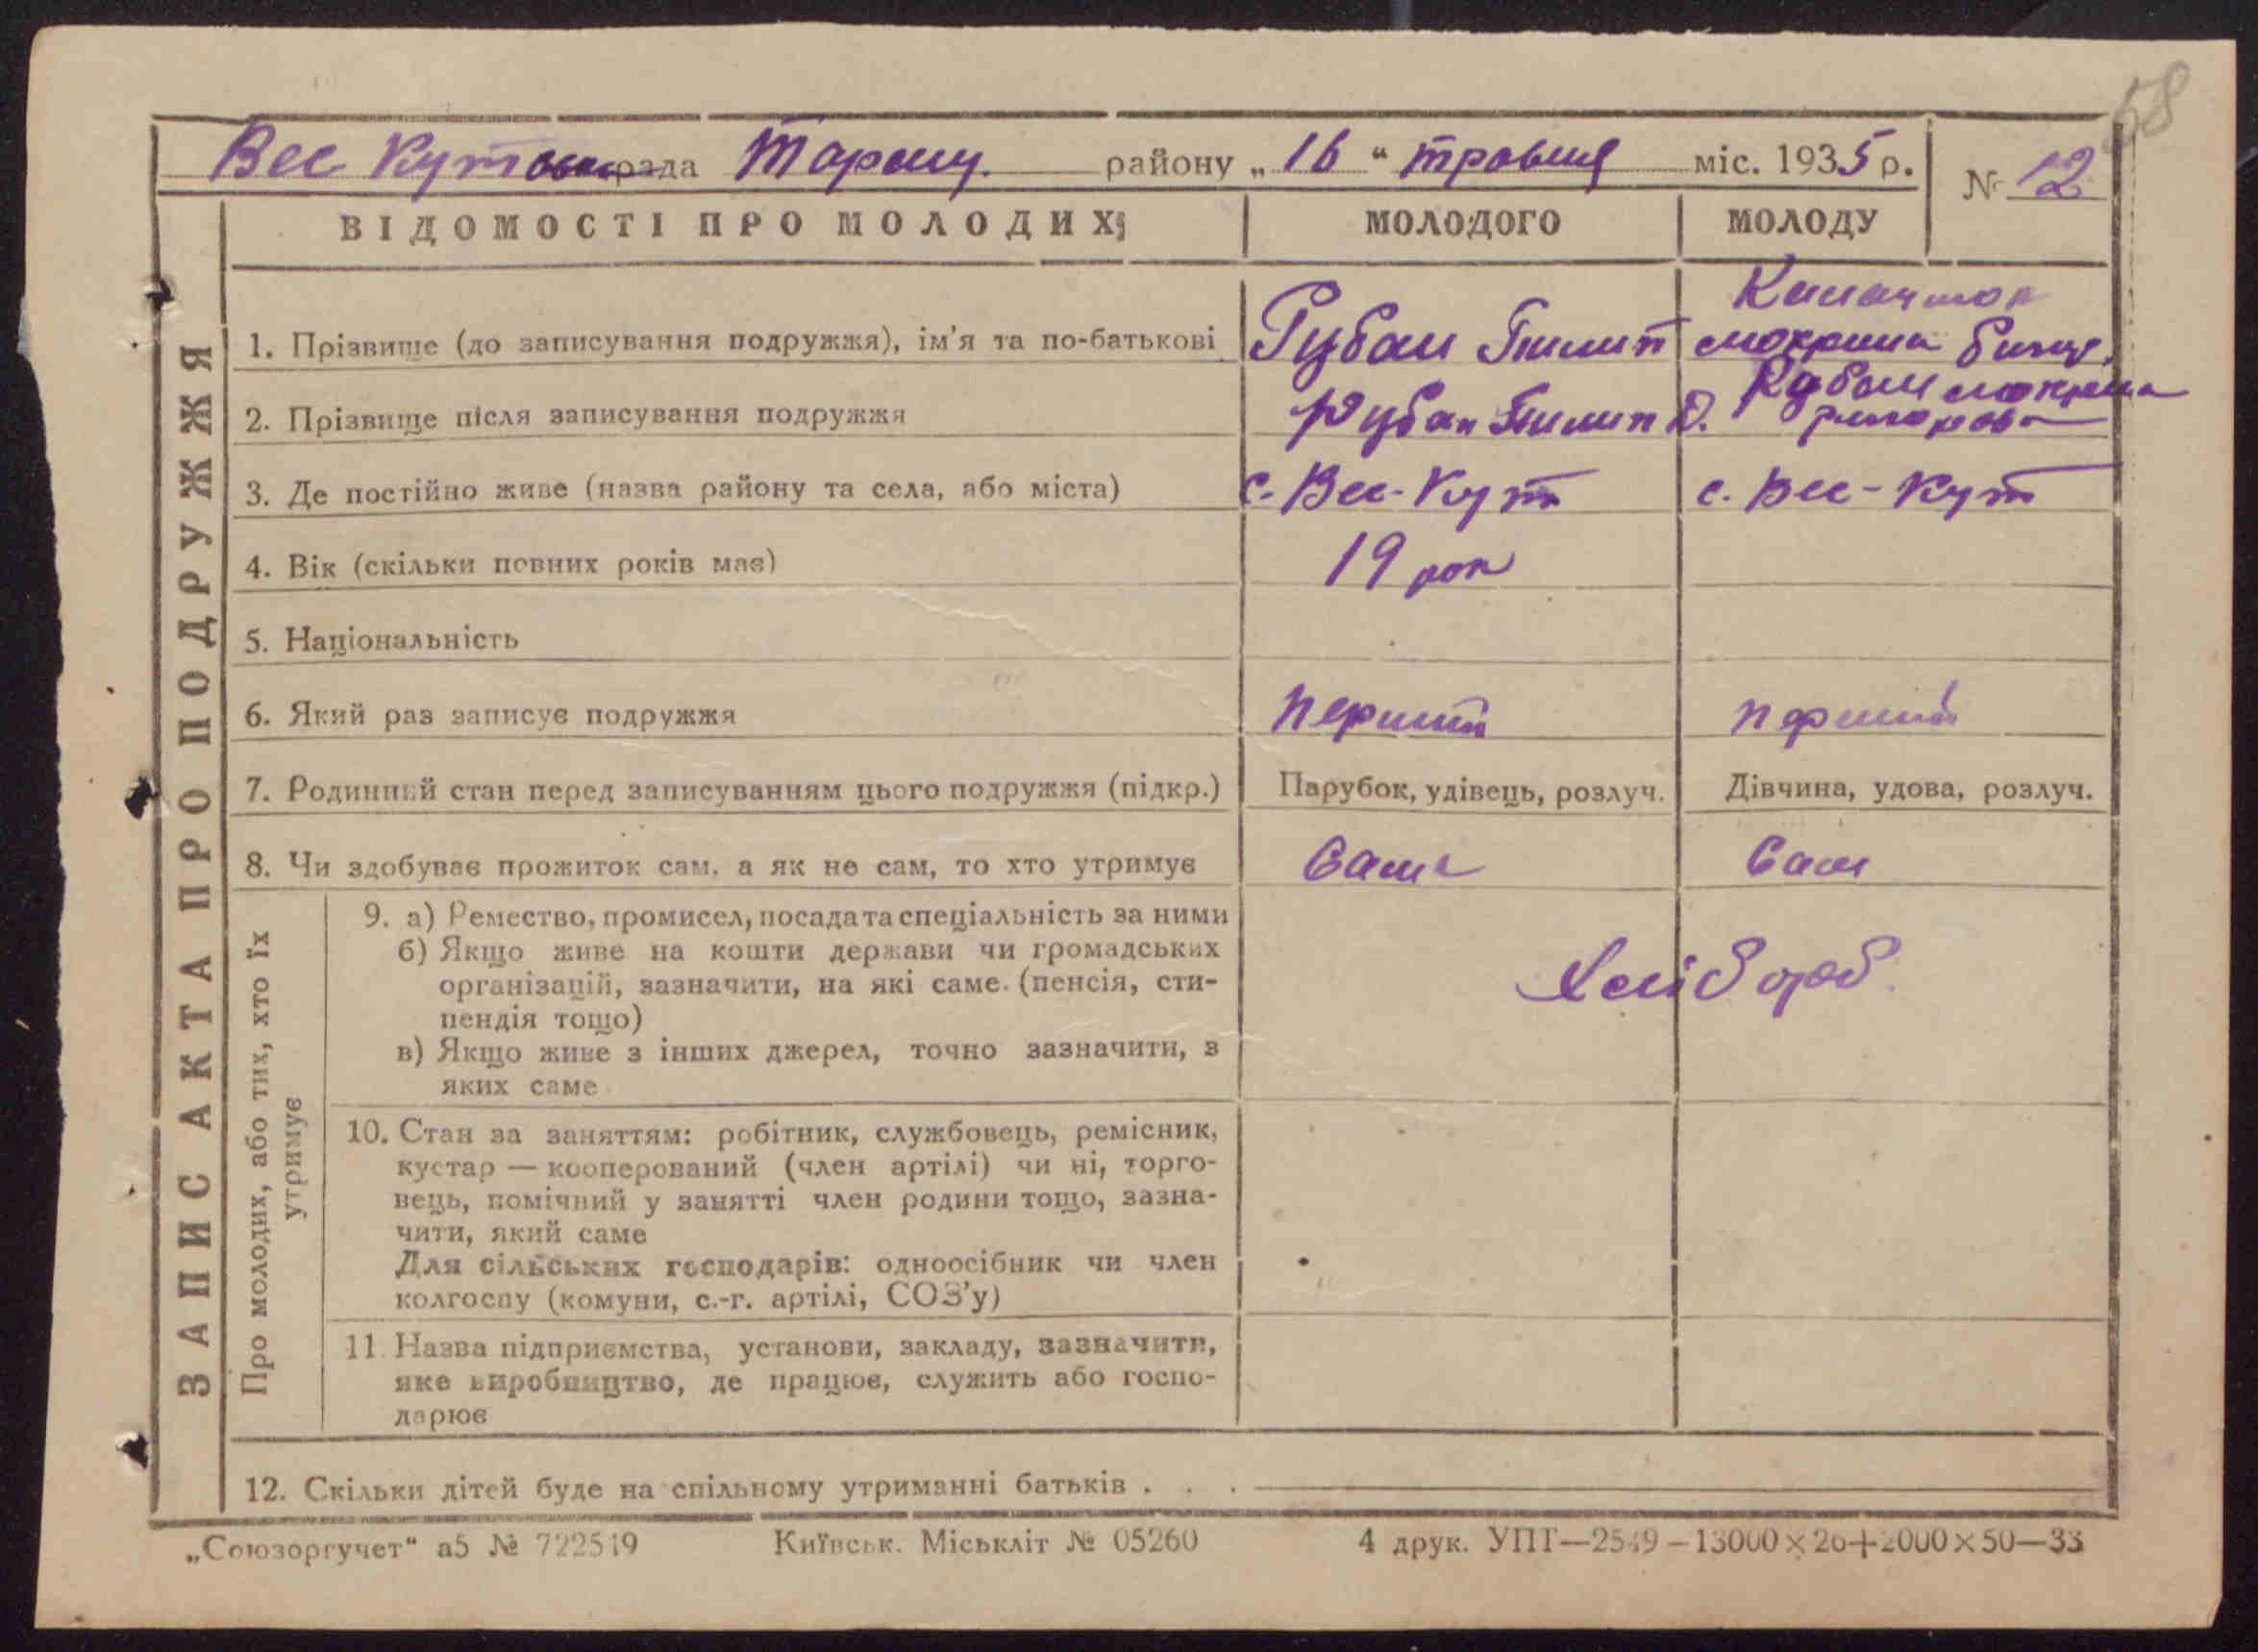 58
Вес Кутовськ рада Таращ. району „ 16 “ травня міс. 1935 р.
№ 12
ЗАПИС АКТА ПРО ПОДРУЖЖЯ
ВІДОМОСТІ ПРО МОЛОДИХ: МОЛОДОГО МОЛОДУ
1. Прізвище (до записування подружжя), ім’я та по-батькові Рубан Пилип
мокрина
2. Прізвище після записування подружжя Рубан Пилип Рубан мокрина
3. Де постійно живе (назва району та села, або міста) с. Вес-Кут с. Вес-Кут
4. Вік (скільки повних років має) 19 рок
5. Національність
6. Який раз записує подружжя перший перший
7. Родинний стан перед записуванням цього подружжя (підкр.) Парубок, удівець, розлуч. Дівчина, удова, розлуч.
8. Чи здобуває прожиток сам, а як не сам, то хто утримує Сам Сам
Про молодих, або тих, хто їх
утримує
9. а) Ремество, промисел, посада та спеціальність за ними
б) Якщо живе на кошти держави чи громадських
організацій, зазначити, на які саме (пенсія, сти-
пендія тощо)
Хлібороб.
в) Якщо живе з інших джерел, точно зазначити, з
яких саме
10. Стан за заняттям: робітник, службовець, ремісник,
кустар — кооперований (член артілі) чи ні, торго-
вець, помічний у занятті член родини тощо, зазна-
чити, який саме
Для сільських господарів: одноосібник чи член
колгоспу (комуни, с.-г. артілі, СОЗ’у)
11. Назва підприємства, установи, закладу, зазначити,
яке виробництво, де працює, служить або госпо-
дарює
12. Скільки дітей буде на спільному утриманні батьків . . .
„Союзоргучет“ а5 № 722519 Київськ. Міськліт № 05260 4 друк. УПТ—2549—13000×26+2000×50—33